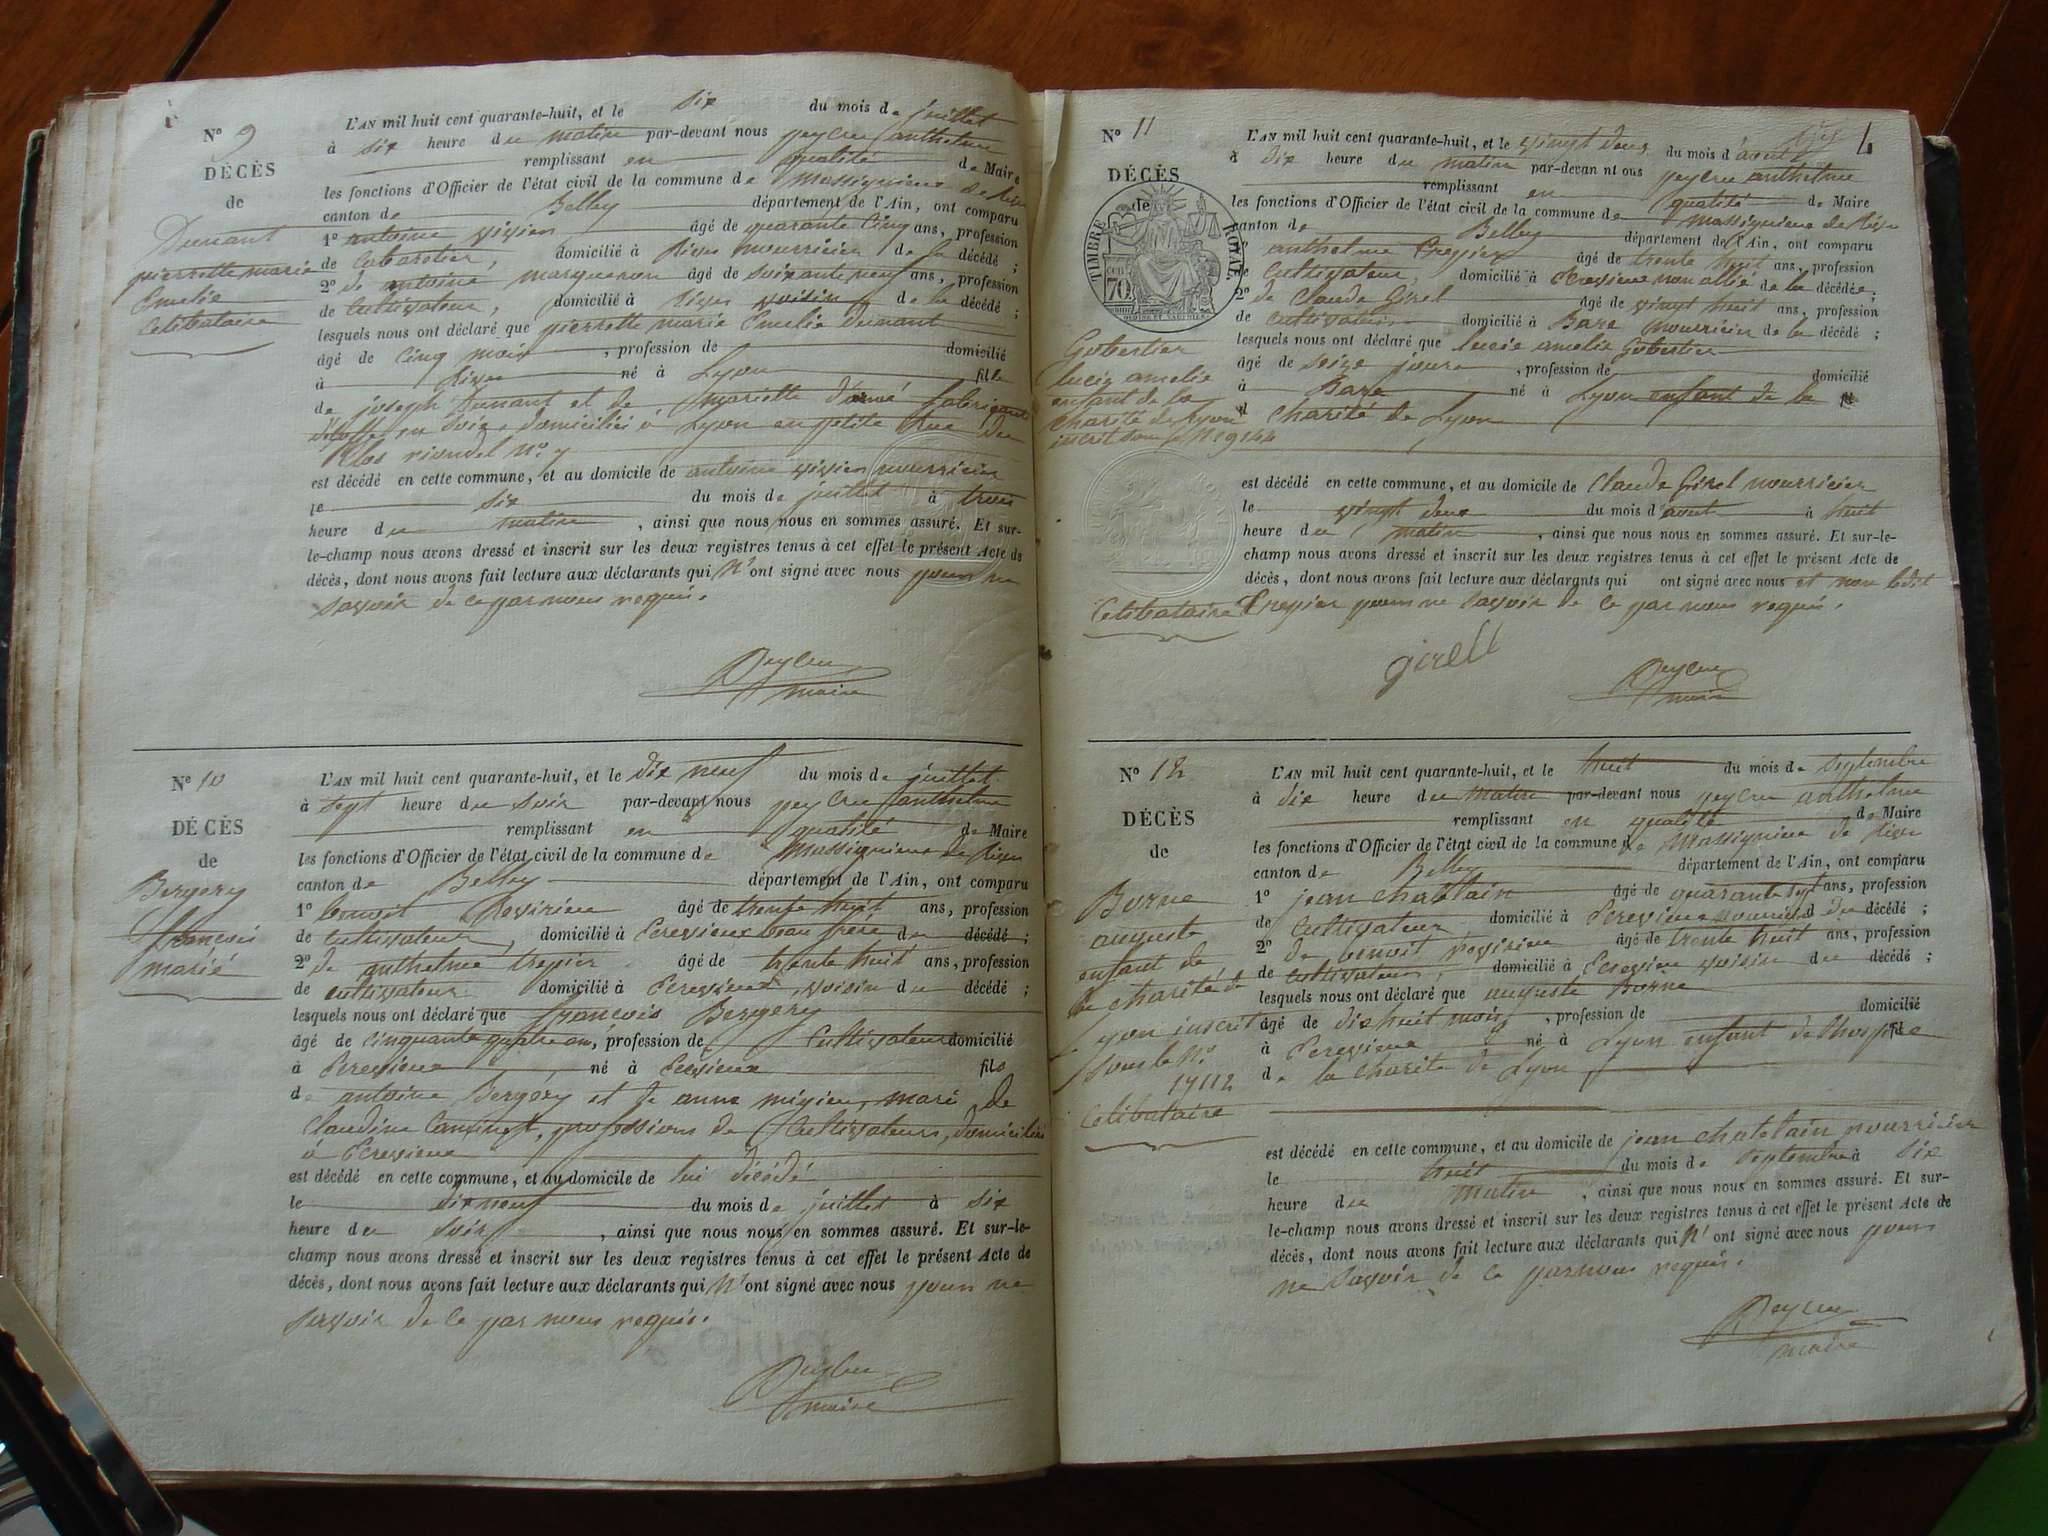 N° 9
DÉCÈS
de
Dunant
pierrette marie
Emelie
Celibataire
L'AN mil huit cent quarante-huit, et le six du mois de juillet
à six heure du matin par-devant nous peycru anthelme
remplissant en qualité de Maire
les fonctions d'Officier de l'état civil de la commune de Massignieu de Rives
canton de Belley département de l'Ain, ont comparu
1° antoine vivien âgé de quarante cinq ans, profession
de Cabaretier, domicilié à Rives nourricier de la décédé ;
2° de antoine marguenon âgé de soixante neuf ans, profession
de Cultivateur, domicilié à Rives voisin de la décédé ;
lesquels nous ont déclaré que pierrette marie Emelie Dunant
âgé de Cinq mois, profession de domicilié
à Rives né à Lyon fille
de joseph Dunant et de mariette fabricant
d'étoffe en soie, domiciliés à Lyon en petite Rue du
Clos riondel N° 7
est décédé en cette commune, et au domicile de antoine vivien nourricier
le six du mois de juillet à trois
heure du matin, ainsi que nous nous en sommes assuré. Et sur-
le-champ nous avons dressé et inscrit sur les deux registres tenus à cet effet le présent Acte de
décès, dont nous avons fait lecture aux déclarants qui N'ont signé avec nous pour ne
savoir de ce par nous requis.
Peycru
maire
N° 10
DÉCÈS
de
Bergery
françois
marié
L'AN mil huit cent quarante-huit, et le dix neuf du mois de juillet
à sept heure du soir par-devant nous peycru anthelme
remplissant en qualité de Maire
les fonctions d'Officier de l'état civil de la commune de Massignieu de Rives
canton de Belley département de l'Ain, ont comparu
1° benoit âgé de trente huit ans, profession
de cultivateur, domicilié à Ecrevieux beau frère du décédé ;
2° de anthelme trepier âgé de trente huit ans, profession
de cultivateur domicilié à Ecrevieux, voisin du décédé ;
lesquels nous ont déclaré que françois Bergery
âgé de Cinquante quatre ans, profession de Cultivateur domicilié
à Ecrevieux né à Ecrevieux fils
de antoine Bergery et de anne mégieu, marié de
Claudine professions de Cultivateurs, domiciliés
à Ecrevieux
est décédé en cette commune, et au domicile de lui décédé
le dix neuf du mois de juillet à six
heure du soir, ainsi que nous nous en sommes assuré. Et sur-le-
champ nous avons dressé et inscrit sur les deux registres tenus à cet effet le présent Acte de
décès, dont nous avons fait lecture aux déclarants qui N'ont signé avec nous pour ne
savoir de ce par nous requis.
Peycru
maire
4
N° 11
DÉCÈS
de
TIMBRE ROYAL
70
Gobertier
lucie amelie
enfant de la
charité de Lyon
inscrit sous le N° 9144
Celibataire
L'AN mil huit cent quarante-huit, et le vingt deux du mois d'août
à dix heure du matin par-devan nt ous peycru anthelme
remplissant en qualité de Maire
les fonctions d'Officier de l'état civil de la commune de Massignieu de Rives
canton de Belley département de l'Ain, ont comparu
1° anthelme Trepier âgé de trente huit ans, profession
de Cultivateur, domicilié à Ecrevieux non allié de la décédée ;
2° de Claude Girel âgé de vingt huit ans, profession
de cultivateur domicilié à Bare nourricier de la décédé ;
lesquels nous ont déclaré que lucie amelie Gobertier
âgé de seize jours, profession de domicilié
à Bare né à Lyon enfant de la fil
d charité de Lyon
est décédé en cette commune, et au domicile de Claude Girel nourricier
le vingt deux du mois d'août à huit
heure du matin, ainsi que nous nous en sommes assuré. Et sur-le-
champ nous avons dressé et inscrit sur les deux registres tenus à cet effet le présent Acte de
décès, dont nous avons fait lecture aux déclarants qui ont signé avec nous et non ledit
Trepier pour ne savoir de ce par nous requis.
girell
Peycru
maire
N° 12
DÉCÈS
de
Borne
auguste
enfant de
la charité de
Lyon inscrit
sous le N°
17112
Celibataire
L'AN mil huit cent quarante-huit, et le huit du mois de septembre
à dix heure du matin par-devant nous peycru anthelme
remplissant en qualité de Maire
les fonctions d'Officier de l'état civil de la commune de Massignieu de Rives
canton de Belley département de l'Ain, ont comparu
1° jean chatelain âgé de quarante sept ans, profession
de Cultivateur domicilié à Ecrevieux nourricier du décédé ;
2° de benoit âgé de trente huit ans, profession
de cultivateur, domicilié à Ecrevieux voisin du décédé ;
lesquels nous ont déclaré que auguste Borne
âgé de dix huit mois, profession de domicilié
à Ecrevieux né à Lyon enfant de l'hospice fil
de la charité de Lyon,
est décédé en cette commune, et au domicile de jean chatelain nourricier
le huit du mois de septembre à six
heure du matin, ainsi que nous nous en sommes assuré. Et sur-
le-champ nous avons dressé et inscrit sur les deux registres tenus à cet effet le présent Acte de
décès, dont nous avons fait lecture aux déclarants qui N'ont signé avec nous pour
ne savoir de ce par nous requis.
Peycru
maire